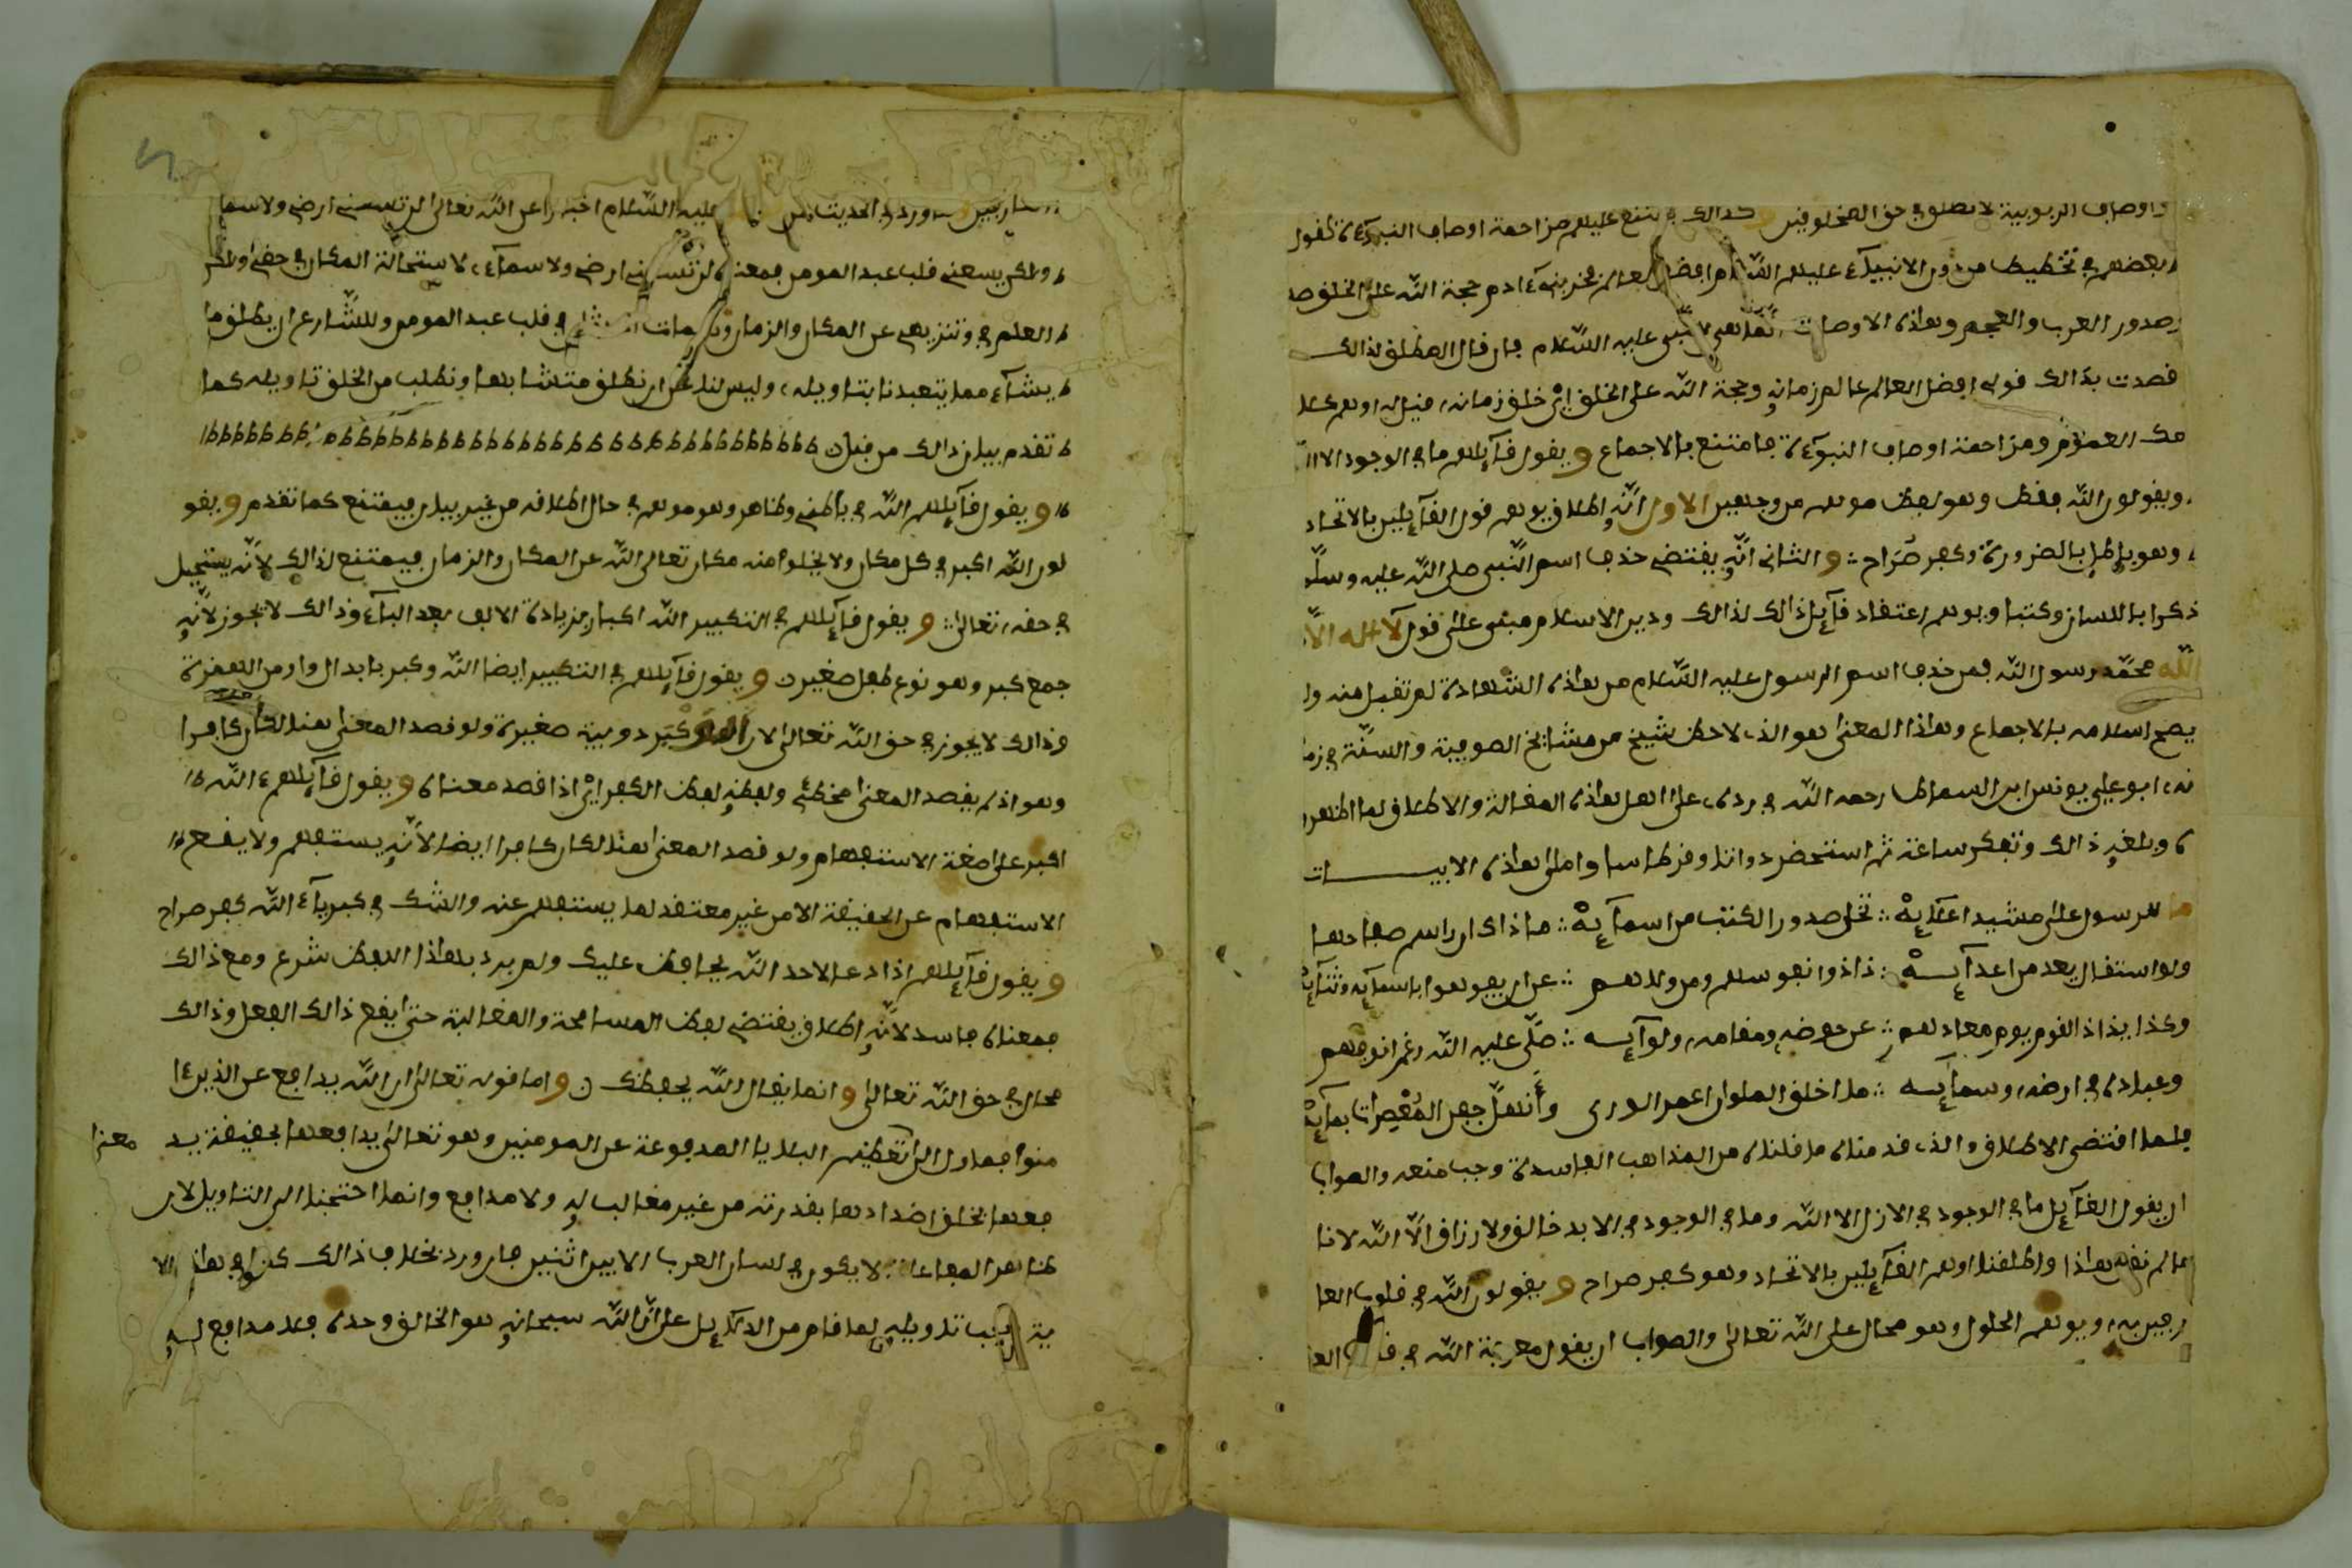 واوصاف الربوبية لا تطلق في حق المخلوقين وكذالك يمتنع عليهم مزاحمة اوصاف النبوءة كقول
بعضهم في تخطيط من دون الانبياء عليهم السلام افضل العالم فخر بني ءادم حجة الله على الخلق
صدور العرب والعجم وهاذه الاوصاف انما هي للنبي عليه السلام فان قال المطلق لذالك
قصدت بذالك قولي افضل العالم عالم زمانه وحجة الله على الخلق اي خلق زمانه قيل له اوهم كلا
مك العموم ومزاحمة اوصاف النبوءة فامتنع بالاجماع ويقول قايلهم ما في الوجود الا
ويقولون الله فقط وهو لفظ موهم من وجهين الاول انه اطلاق يوهم قول القايلين بالاتحاد
وهو باطل بالضرورة وكفر صراح والثاني انه يقتضي حذف اسم النبي صلى الله عليه وسلم
ذكرا باللسان وكتبا ويوهم اعتقاد قايل ذالك لذالك ودين الاسلام مبني على قول لا اله الا
الله محمد رسول الله فمن حذف اسم الرسول عليه السلام من هاذه الشهادة لم تقبل منه ولم
يصح اسلامه بالاجماع وهاذا المعنى هو الذي لاحظ شيخ من مشائخ الصوفية والسنة في زما
نه ابو علي يونس ابن السماط رحمه الله في رده على اهل هاذه المقالة والاطلاق لما اظهر
ه وبلغه ذالك وتفكر ساعة ثم استحضر دواتا وقرطاسا واملى هاذه الابيات
ما للرسول على مشيد اعلايه تخلى صدور الكتب من اسمايه ماذا كان راسم صفاحها
ولو استقال بعد من اعدايه ذاذوا نفوسهم ومن ولدهم عن ان يفوهوا باسمايه وثنايه
وكذا يذاذ القوم يوم معادهم عن حوضه ومقامه ولوايه صلى عليه الله رغم انوفهم
وعباده في ارضه وسمايه ما اخلق الملوان اعمر الورى وأنهل جفن المعصرات بمايه
فلما اقتضى الاطلاق والذي قدمناه ما قلناه من المذاهب الفاسدة وجب منعه والصواب
ان يقول القايل ما في الوجود في الازل الا الله وما في الوجود في الابد خالق ولا رازق الا الله لانا
ما لم نقل هاذا واطلقنا اوهم القايلين بالاتحاد وهو كفر صراح ويقولون الله في قلوب العا
رفين به ويوهم الحلول وهو محال على الله تعالى والصواب ان يقول معرفة الله في العا
ورد في الحديث عليه السلام اخبارا عن الله تعالى لن تسعني ارضي ولا سما
ولكن يسعني قلب عبد المومن فمعناه لن تسعني ارضي ولا سماء لاستحالة المكان في حقي ولكن
العلم في وتنزيهي عن المكان والزمان في قلب عبد المومن وللشارع ان يطلق ما
يشاء مما يتعبدنا بتاويله وليس لنا نحن ان نطلق متشابها ونطلب من الخلق تاويله كما
تقدم بيان ذالك من قبل
ويقول قايلهم الله في باطني وظاهر وهو موهم في حال اطلاقه من غير بيان فيمتنع كما تقدم ويقو
لون الله اكبر في كل مكان ولا يخلوا منه مكان تعالى الله عن المكان والزمان فيمتنع لذالك لانه يستحيل
في حقه تعالى ويقول قايلهم في التكبير الله اكبار بزيادة الالف بعد الباء وذالك لا يجوز لانه
جمع كبر وهو نوع طبل صغير ويقول قايلهم في التكبير ايضا الله وكبر بابدال واو من الهمزة
وذالك لا يجوز في حق الله تعالى لان الوكبر دويبة صغيرة ولو قصد المعنى هنا لكان كافرا
وهو اذ لم يقصد المعنى مخطئ ولفظه لفظ الكفر اي اذا قصد معناه ويقول قايلهم ءالله
اكبر على صفة الاستفهام ولو قصد المعنى هنا لكان كافرا ايضا لانه يستفهم ولا يقع
الاستفهام عن الحقيقة الا من غير معتقد لما يستفهم عنه والشك في كبرياء الله كفر صراح
ويقول قايلهم اذا دعا لاحد الله يحافظ عليك ولم يرد بهاذا اللفظ شرع ومع ذالك
فمعناه فاسد لانه اطلاق يقتضي لفظ المسامحة والمغالبة حتى ايقع ذالك الفعل وذالك
محال في حق الله تعالى وانما يقال الله يحفظك واما قوله تعالى ان الله يدافع عن الذين ءا
منوا فماول البلايا المدفوعة عن المومنين وهو تعالى يدافعها بحقيقة يد معنا
فعها بخلق اضدادها بقدرته من غير مغالب له ولا مدافع وانما احتجنا الى التاويل لان
ظاهر المفاعلة لا يكون في لسان العرب الا بين اثنين فان ورد بخلاف ذالك كما في هاذه الا
ية فيجب تاويله لما قام من الدلايل على ان الله سبحانه هو الخالق وحده فلا مدافع له